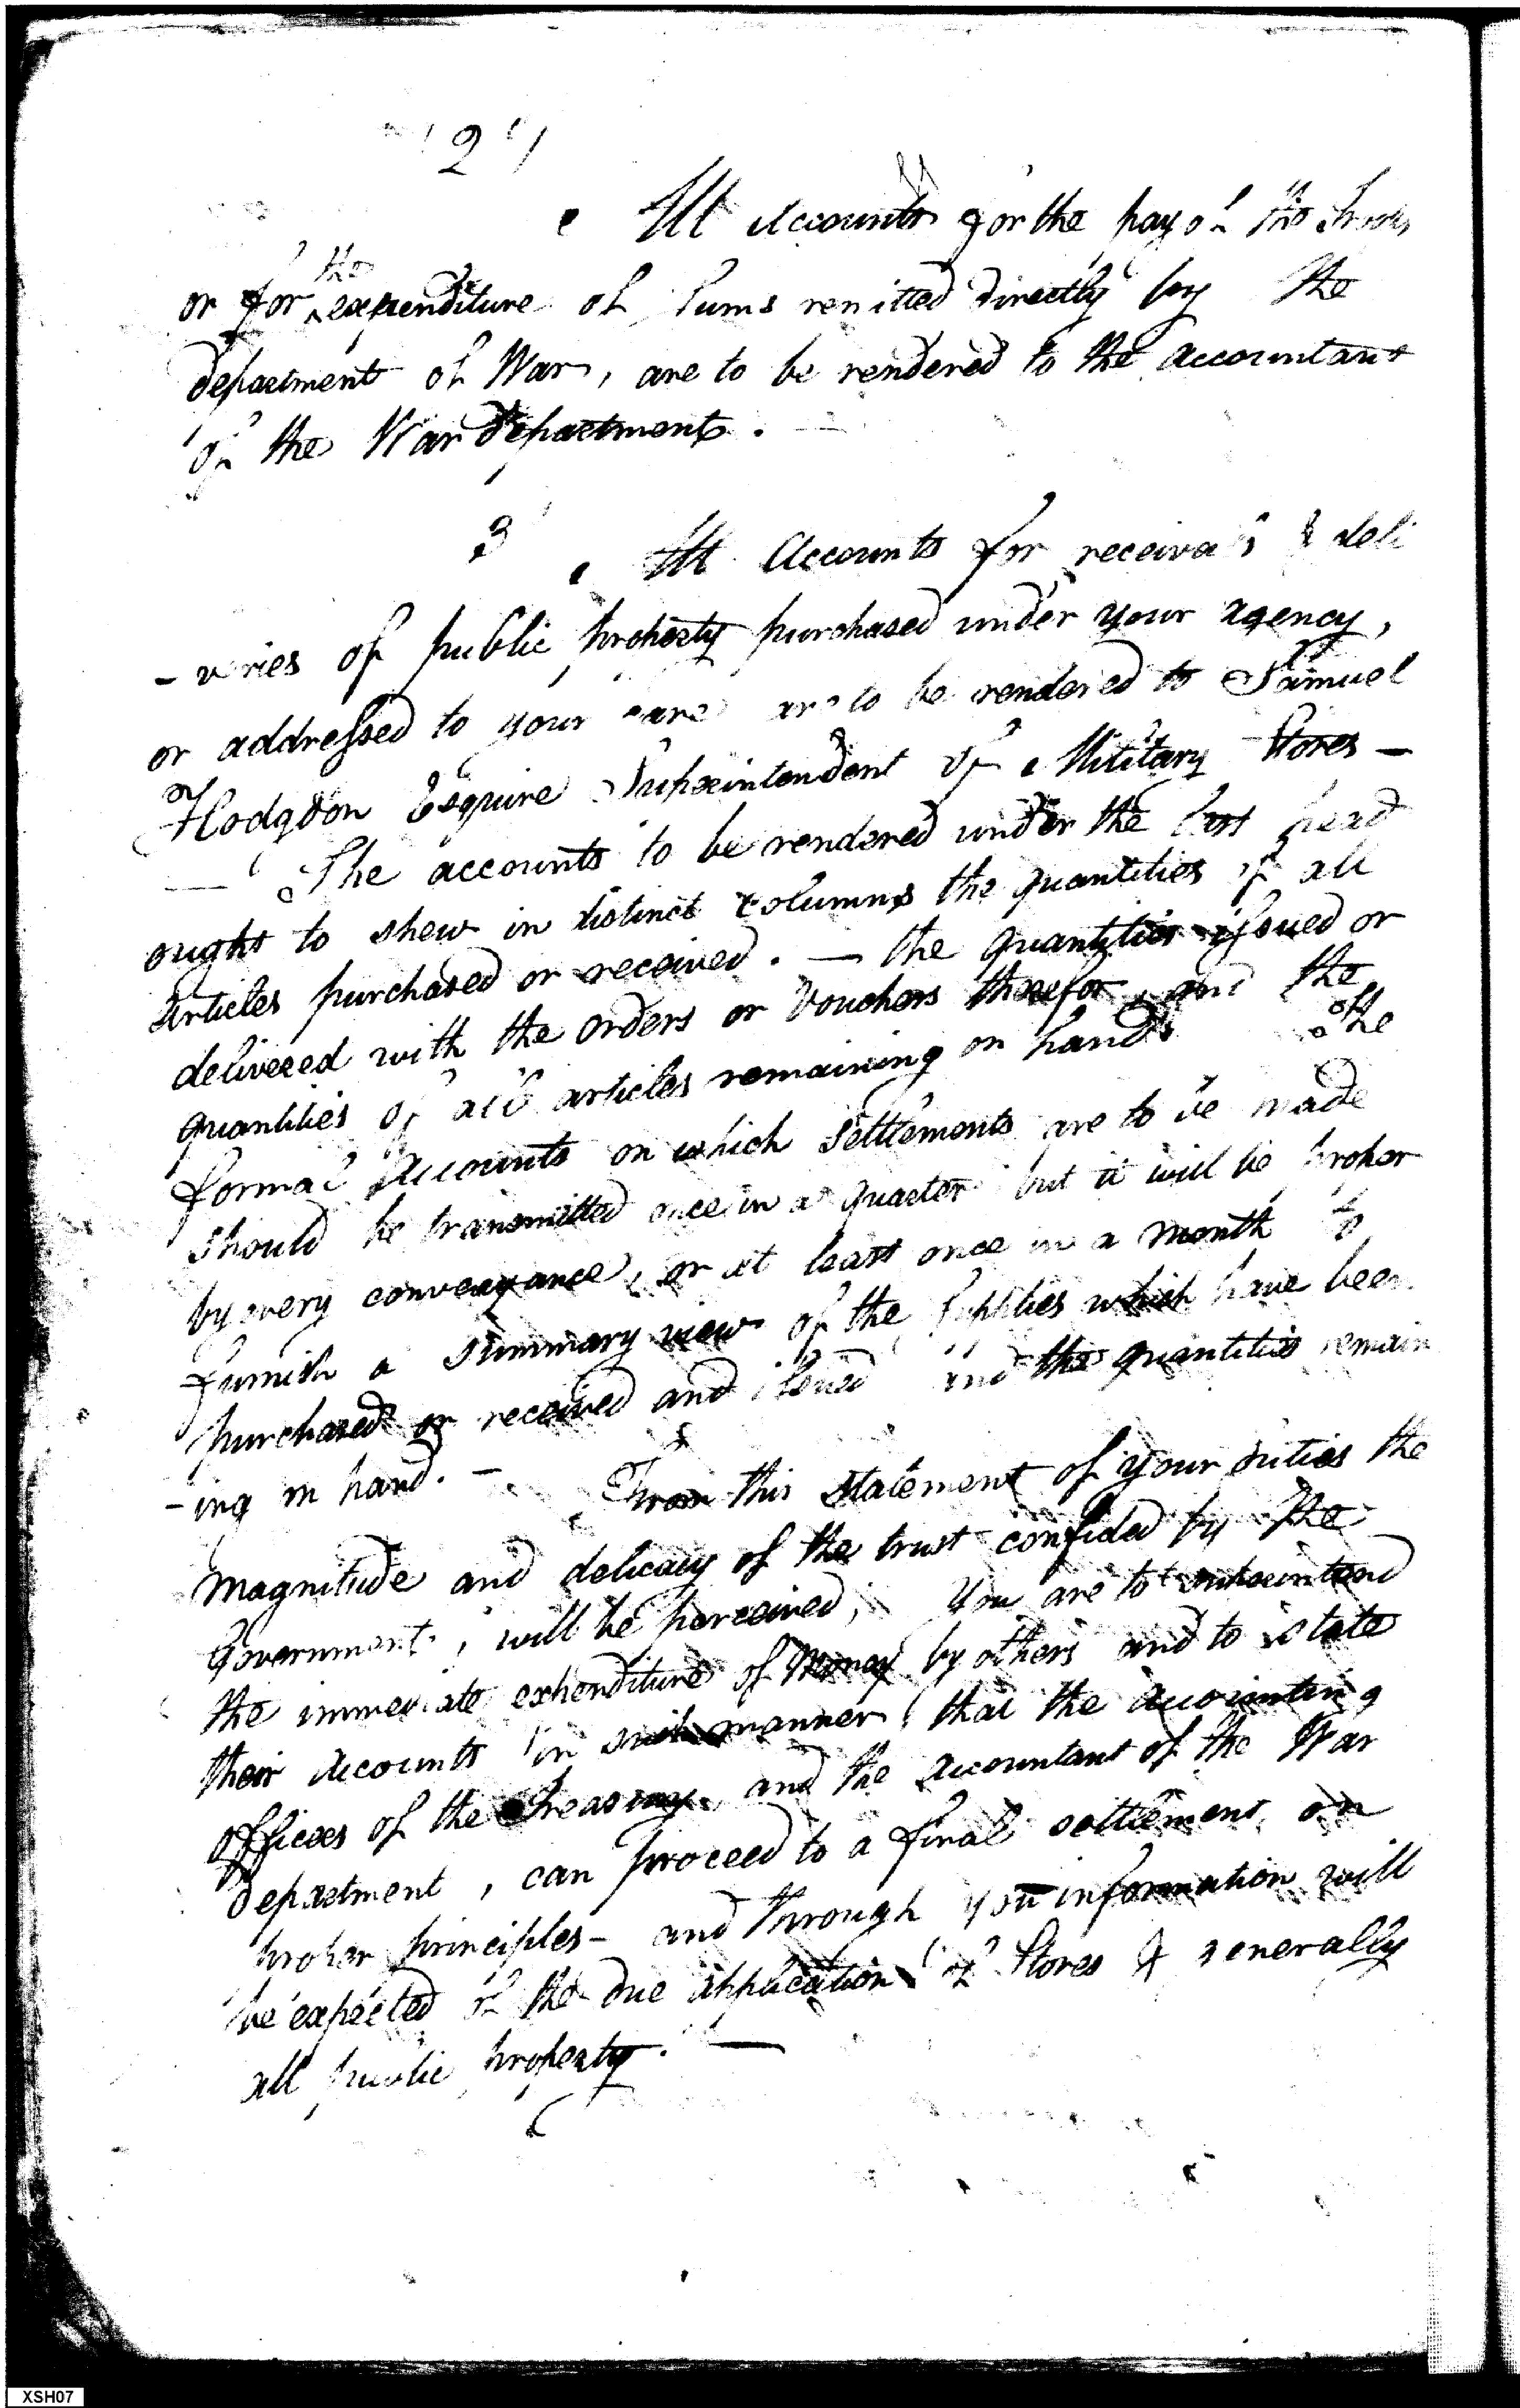 2
All Accounts for the pay of the Troops
or for the expenditure of Sums remitted directly by the
department of War, are to be rendered to the accountant
of the War department.
3
All Accounts for receivals & deli
-veries of public property purchased under your agency,
or addressed to your care are to be rendered to Samuel
Hodgdon Esquire Superintendent of Military Stores —
— The accounts to be rendered under the last head
ought to shew in distinct columns the quantities of all
articles purchased or received. — the quantities issued or
delivered with the orders or vouchers therefor, and the
quantities of all articles remaining on hand. The
formal Accounts on which settlements are to be made
should be transmitted once in a quarter but it will be proper
by every conveyance, or at least once in a month to
furnish a summary view of the supplies which have been
purchased or received and issued and the quantities remain
-ing on hand. —
From this statement of your duties the
magnitude and delicacy of the trust confided by the
Government, will be perceived; You are to superintend
the immediate expenditure of Money by others and to state
their accounts in such manner that the accounting
officers of the Treasury and the Accountant of the War
department, can proceed to a final settlement on
proper principles - and through you information will
be expected of the due application of Stores & generally
all public property. —
XSH07